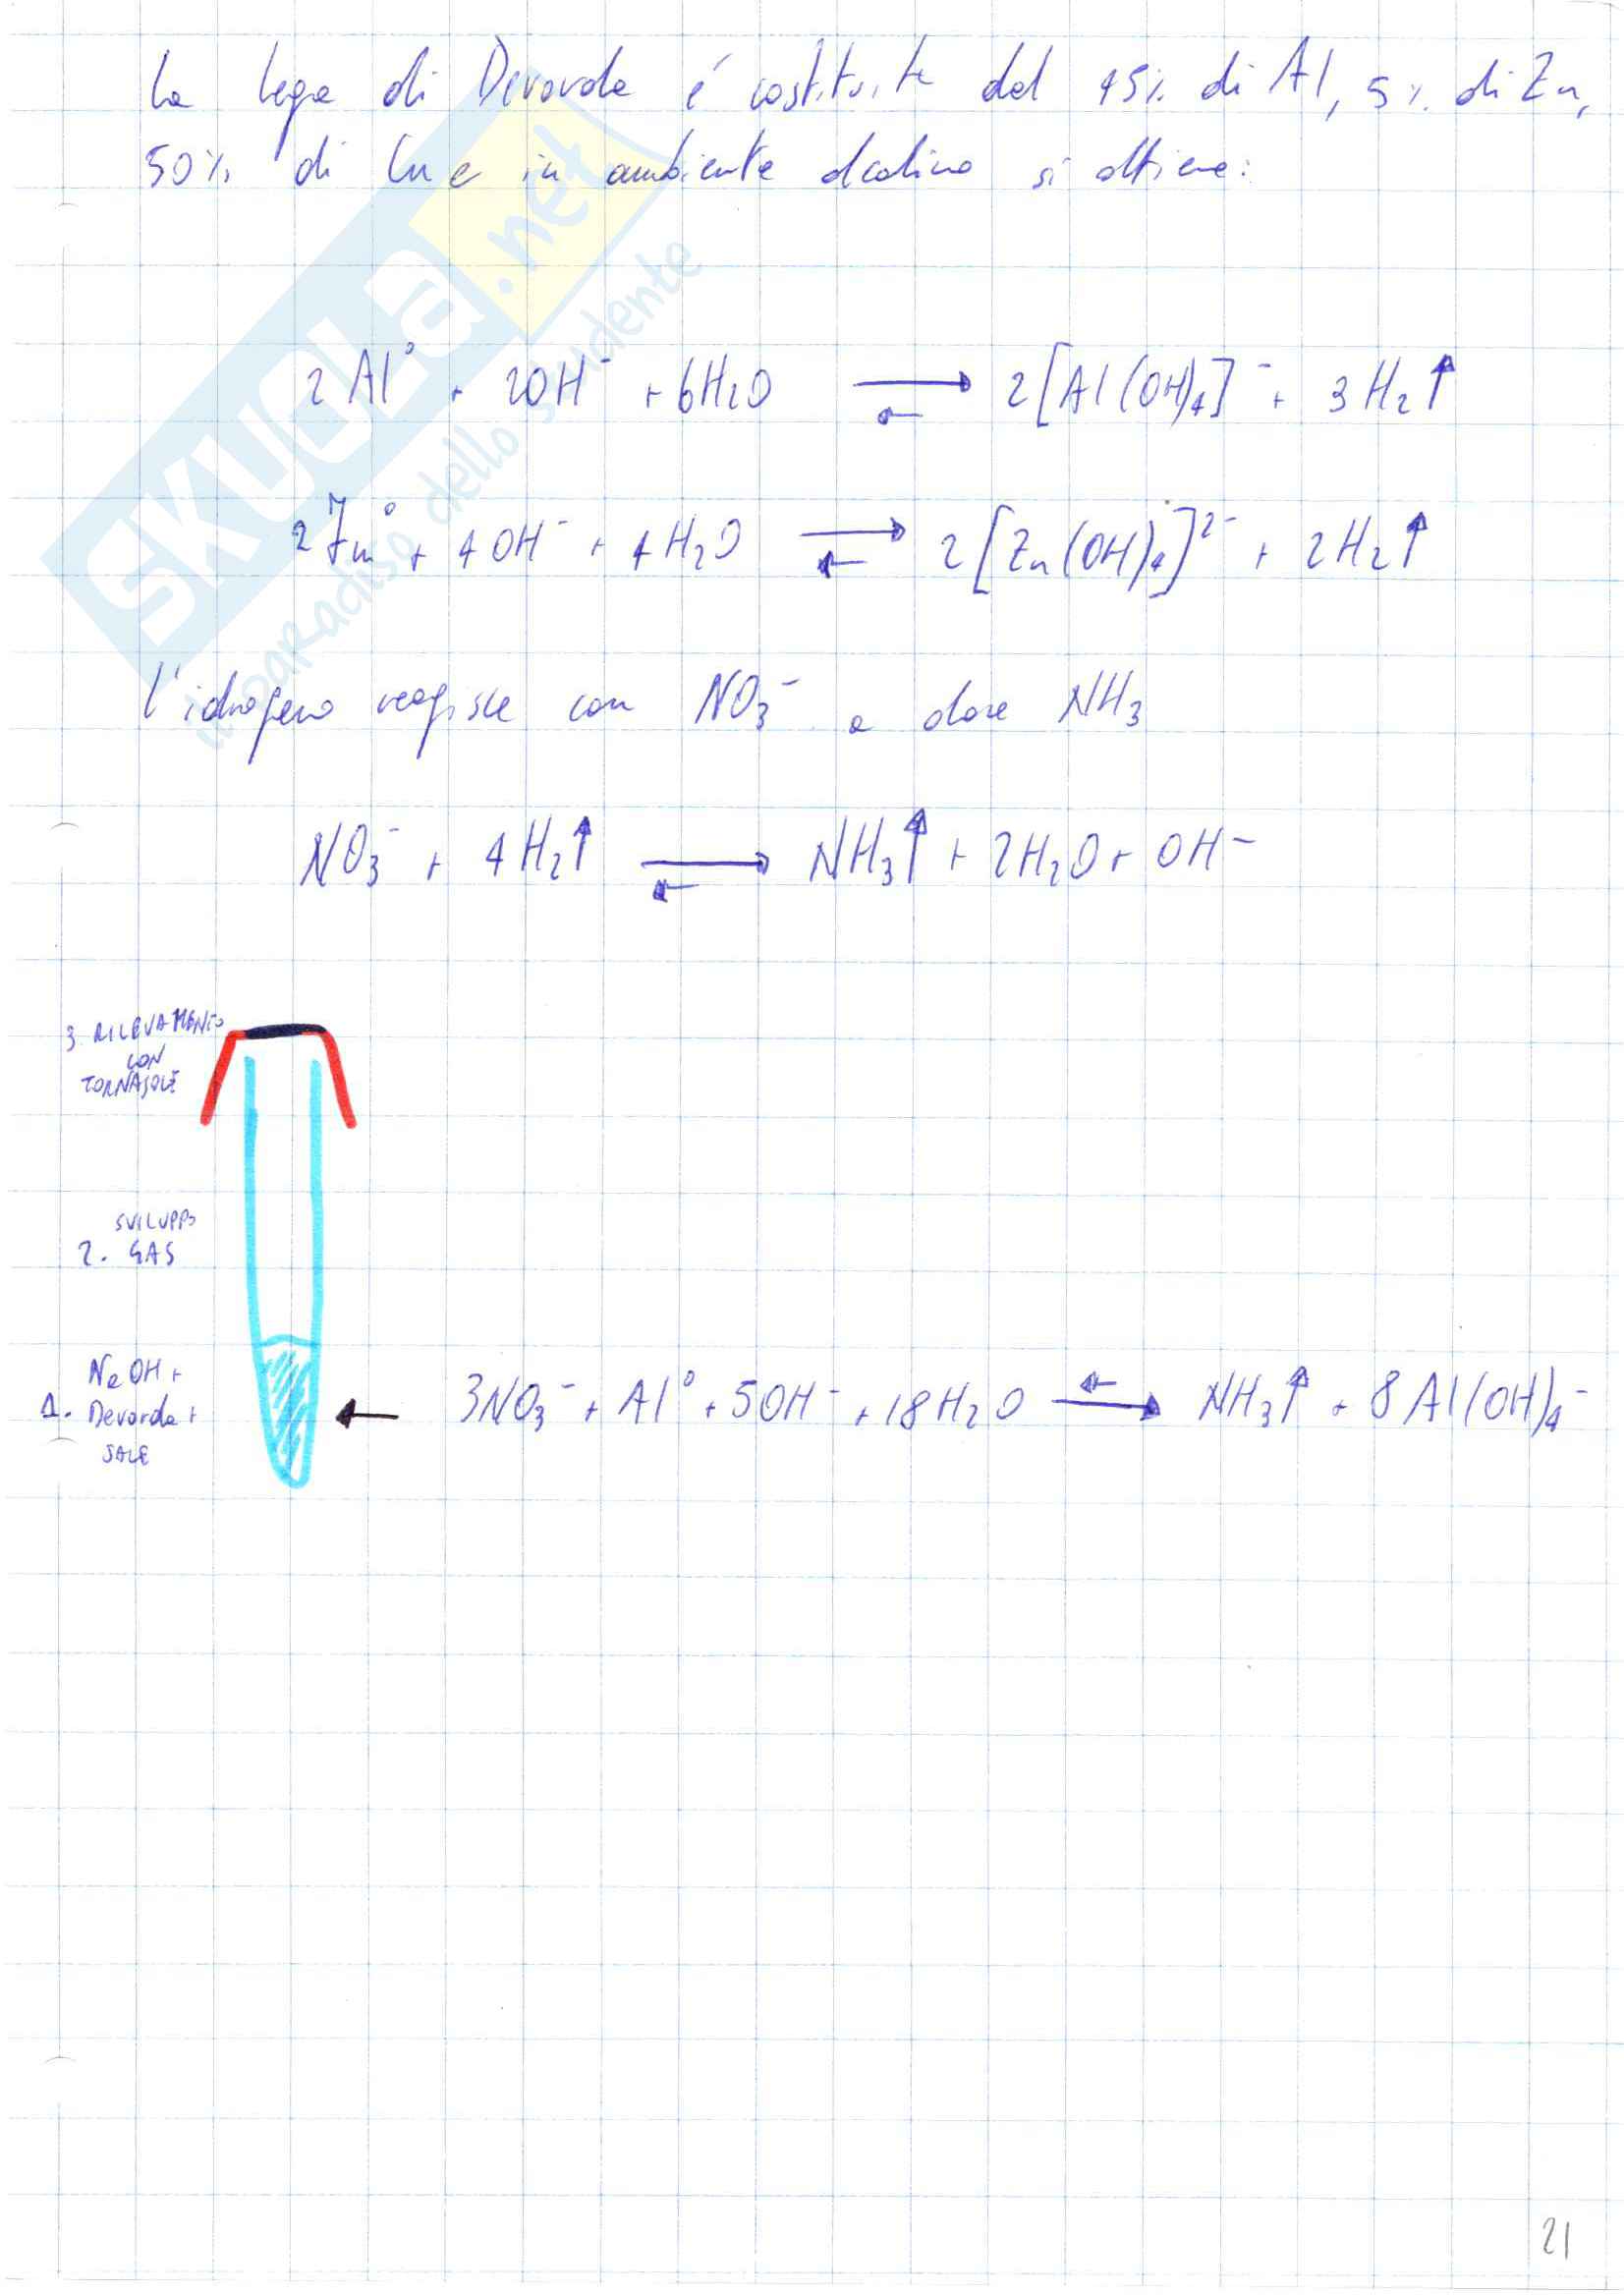 La lega di Devarda é costituita dal 45% di Al, 5% di Zn,
50% di Cu e in ambiente alcalino si ottiene:
2Al° + 2OH⁻ + 6H₂O ⇌ 2[Al(OH)₄]⁻ + 3H₂↑
2Zn° + 4OH⁻ + 4H₂O ⇌ 2[Zn(OH)₄]²⁻ + 2H₂↑
L'idrogeno reagisce con NO₃⁻ a dare NH₃
NO₃⁻ + 4H₂↑ ⇌ NH₃↑ + 2H₂O + OH⁻
3 RILEVAMENTO
CON
TORNASOLE
SVILUPPO
2. GAS
NaOH +
1. Devarda +
SALE
3NO₃⁻ + Al° + 5OH⁻ + 18H₂O ⇌ NH₃↑ + 8Al(OH)₄⁻
21
SKUOLA.net
il paradiso dello studente